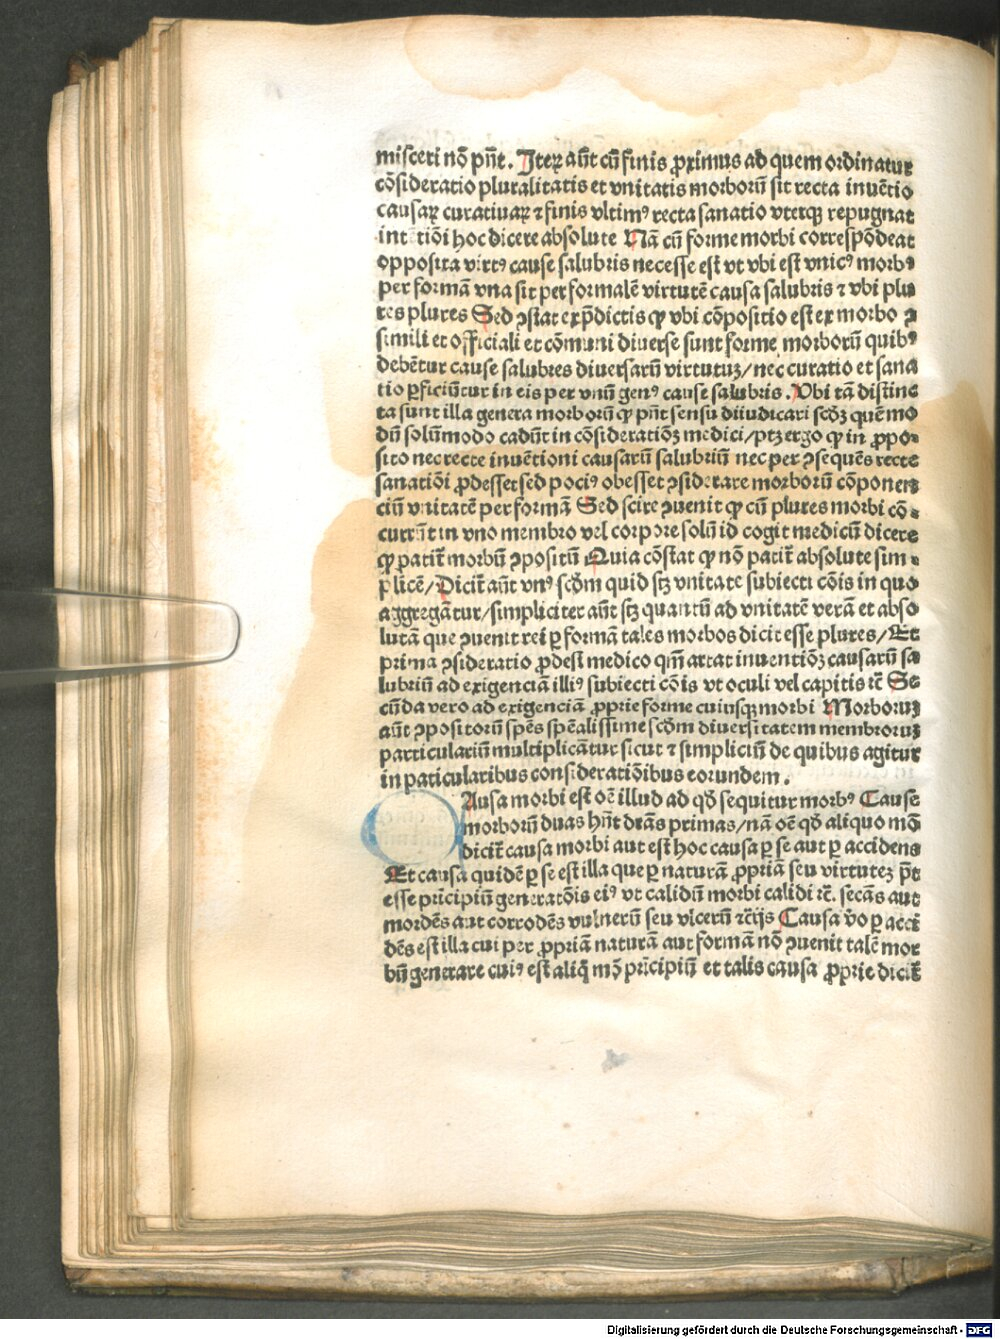 misceri nõ pñt. Iteꝝ aũt cũ finis ꝓximus ad quem ordinatur
cõsideratio pluralitatis et vnitatis morborũ sit recta inuẽtio
causaꝝ curatiuaꝝ ⁊ finis vltimꝰ recta sanatio vterqꝫ repugnat
intẽtiõi hoc dicere absolute Nã cũ forme morbi correspõdeat
opposita virtꝰ cause salubris necesse est vt vbi est vnicꝰ morbꝰ
per formã vna sit per formalẽ virtutẽ causa salubris ⁊ vbi plu
res plures Sed ꝯstat ex p̃dictis ꝙ vbi cõpositio est ex morbo ꝯ
simili et officiali et cõmuni diuerse sunt forme morborũ quibꝰ
debẽtur cause salubres diuersarũ virtutuꝫ/ nec curatio et sana
tio ꝑficiũtur in eis per vnũ genꝰ cause salubris. Vbi tã distinc
ta sunt illa genera morborũ ꝙ pñt sensu diiudicari scd̃ꝫ quẽ mo
dũ solũmodo cadũt in cõsideratiõꝫ medici/ ptꝫ ergo ꝙ in ꝓpo⸗
sito nec recte inuẽtioni causarũ salubriũ nec per ꝯsequẽs recte
sanatiõi ꝓdesset sed pociꝰ obesset ꝯsiderare morborũ cõponen
ciũ vnitatẽ per formã Sed scire ꝯuenit ꝙ cũ plures morbi cõ⸗
currũt in vno membro vel corpore solũ id cogit medicũ dicere
ꝙ patit̃ morbũ ꝯpositũ Quia cõstat ꝙ nõ patit̃ absolute sim⸗
plicẽ/ Dicit̃ aũt vnꝰ scd̃m quid sꝫ vnitate subiecti cõis in quo
aggregãtur/ simpliciter aũt sꝫ quantũ ad vnitatẽ verã et abso
lutã que ꝯuenit rei ꝑ formã tales morbos dicit esse plures/ Et
prima ꝯsideratio ꝓdest medico qm̃ artat inuentiõꝫ causarũ sa
lubriũ ad exigenciã illiꝰ subiecti cõis vt oculi vel capitis ⁊c̃ Se
cũda vero ad exigenciã ꝓprie forme cuiusqꝫ morbi Morboruꝫ
aũt ꝯpositorũ sp̃es sp̃ealissime scd̃m diuersitatem membroruꝫ
particulariũ multiplicãtur sicut ⁊ simpliciũ de quibus agitur
in paticularibus consideratiõibus eorundem.
Ausa morbi est oẽ illud ad qd̃ sequitur morbꝰ Cause
morborũ duas hñt dr̃as primas/ nã oẽ qd̃ aliquo mõ
dicit̃ causa morbi aut est hoc causa ꝑ se aut ꝑ accidens
Et causa quidẽ ꝑ se est illa que ꝑ naturã ꝓpriã seu virtuteꝫ p̃t
esse prĩcipiũ generatõis eiꝰ vt calidũ morbi calidi ⁊c̃. secãs aut
mordẽs aut corrodẽs vulnerũ seu vlcerũ ⁊c̃ijs Causa ṽo ꝑ acci
dẽs est illa cui per ꝓpriã naturã aut formã nõ ꝯuenit talẽ mor
bũ generare cuiꝰ est aliq̃ mõ prĩcipiũ et talis causa ꝓprie dicit̃
Digitalisierung gefördert durch die Deutsche Forschungsgemeinschaft - DFG